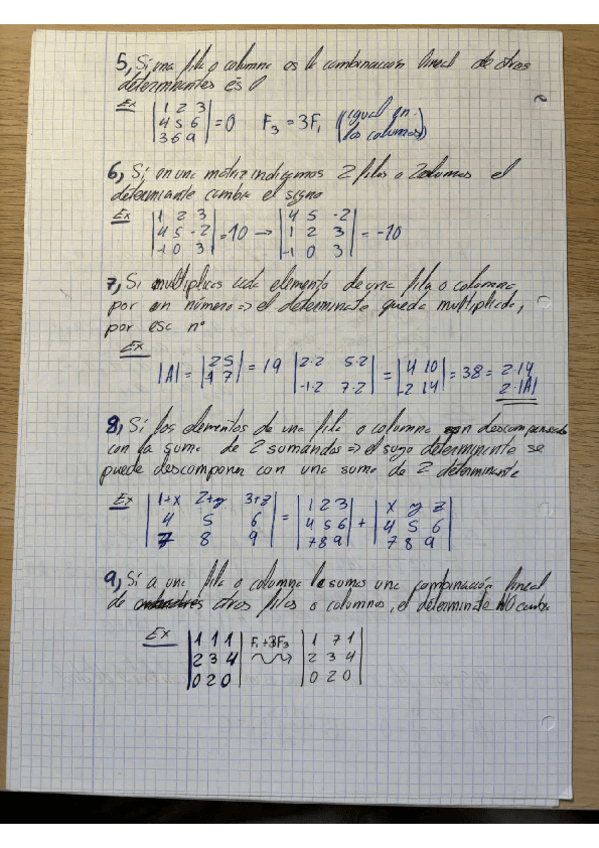 5, Si una fila o columna es le combinacion lineal de otras
determinantes es 0
Ex |1 2 3| F₃ = 3F₁ (igual en
|4 5 6| = 0 las columnas)
|3 6 9|
6, Si en una matriz 2 filas o 2 columnas el
determiante cambia el signo
Ex |1 2 3| |4 5 -2|
|4 5 -2| = 10 → |1 2 3| = -10
|-1 0 3| |-1 0 3|
7, Si multiplicas cada elemento de una fila o columna,
por un número => el determinate queda multiplicado,
por ese nº
Ex
|A| = |2 5| = 19 |2·2 5·2| = |4 10| = 38 = 2·19
|-1 7| |-1·2 7·2| |-2 14| 2·|A|
8, Si los elementos de una fila o columna son
con la suma de 2 sumandos => el determinante se
puede descomponer con una suma de 2 determinante
Ex |1+x 2+y 3+z| |1 2 3| |x y z|
|4 5 6| = |4 5 6| + |4 5 6|
|7 8 9| |7 8 9| |7 8 9|
9, Si a una fila o columna le sumas una combinación lineal
de otras filas o columnas, el determinate NO cambia
Ex |1 1 1| F₁+3F₃ |1 7 1|
|2 3 4| |2 3 4|
|0 2 0| |0 2 0|